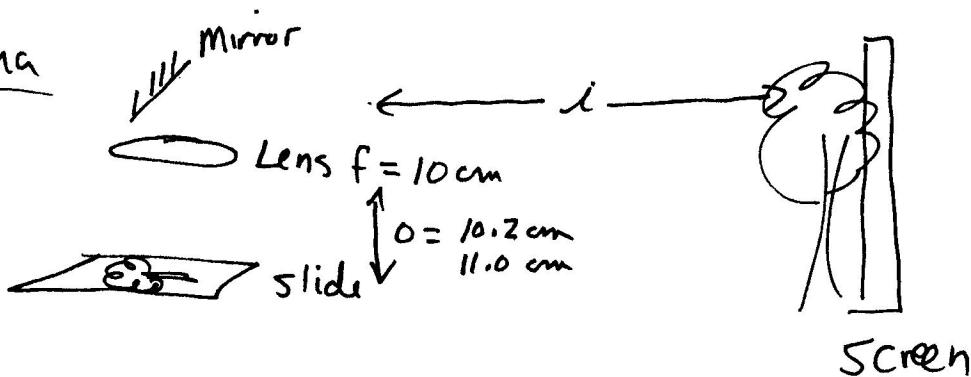 Mirror
i
Lens f = 10 cm
o = 10.2 cm
11.0 cm
slide
Screen